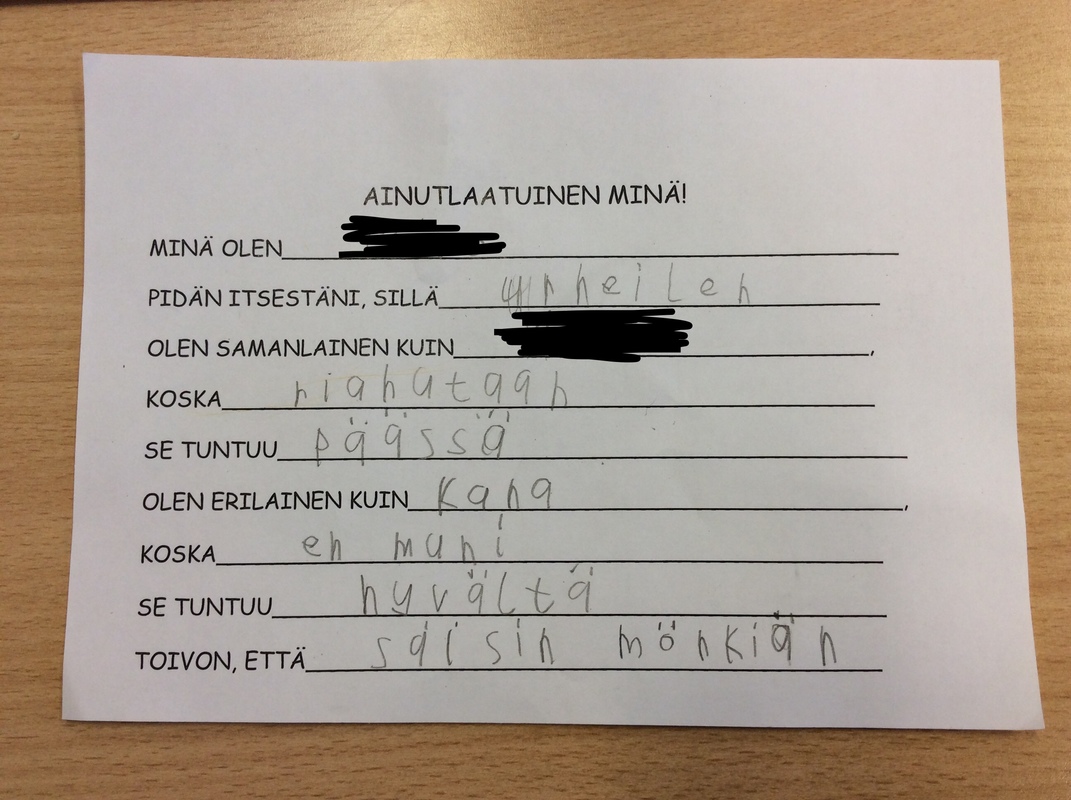 AINUTLAATUINEN MINÄ!
MINÄ OLEN
PIDÄN ITSESTÄNI, SILLÄ urheilen
OLEN SAMANLAINEN KUIN ,
KOSKA riahutaan
SE TUNTUU päässä
OLEN ERILAINEN KUIN Kana ,
KOSKA en muni
SE TUNTUU hyvältä
TOIVON, ETTÄ säisin mönkiän